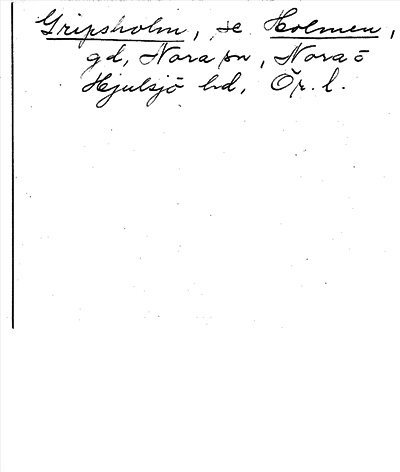 Gripsholm, se Holmen,
gd, Nora sn, Nora ö
Hjulsjö hd, Ör. l.